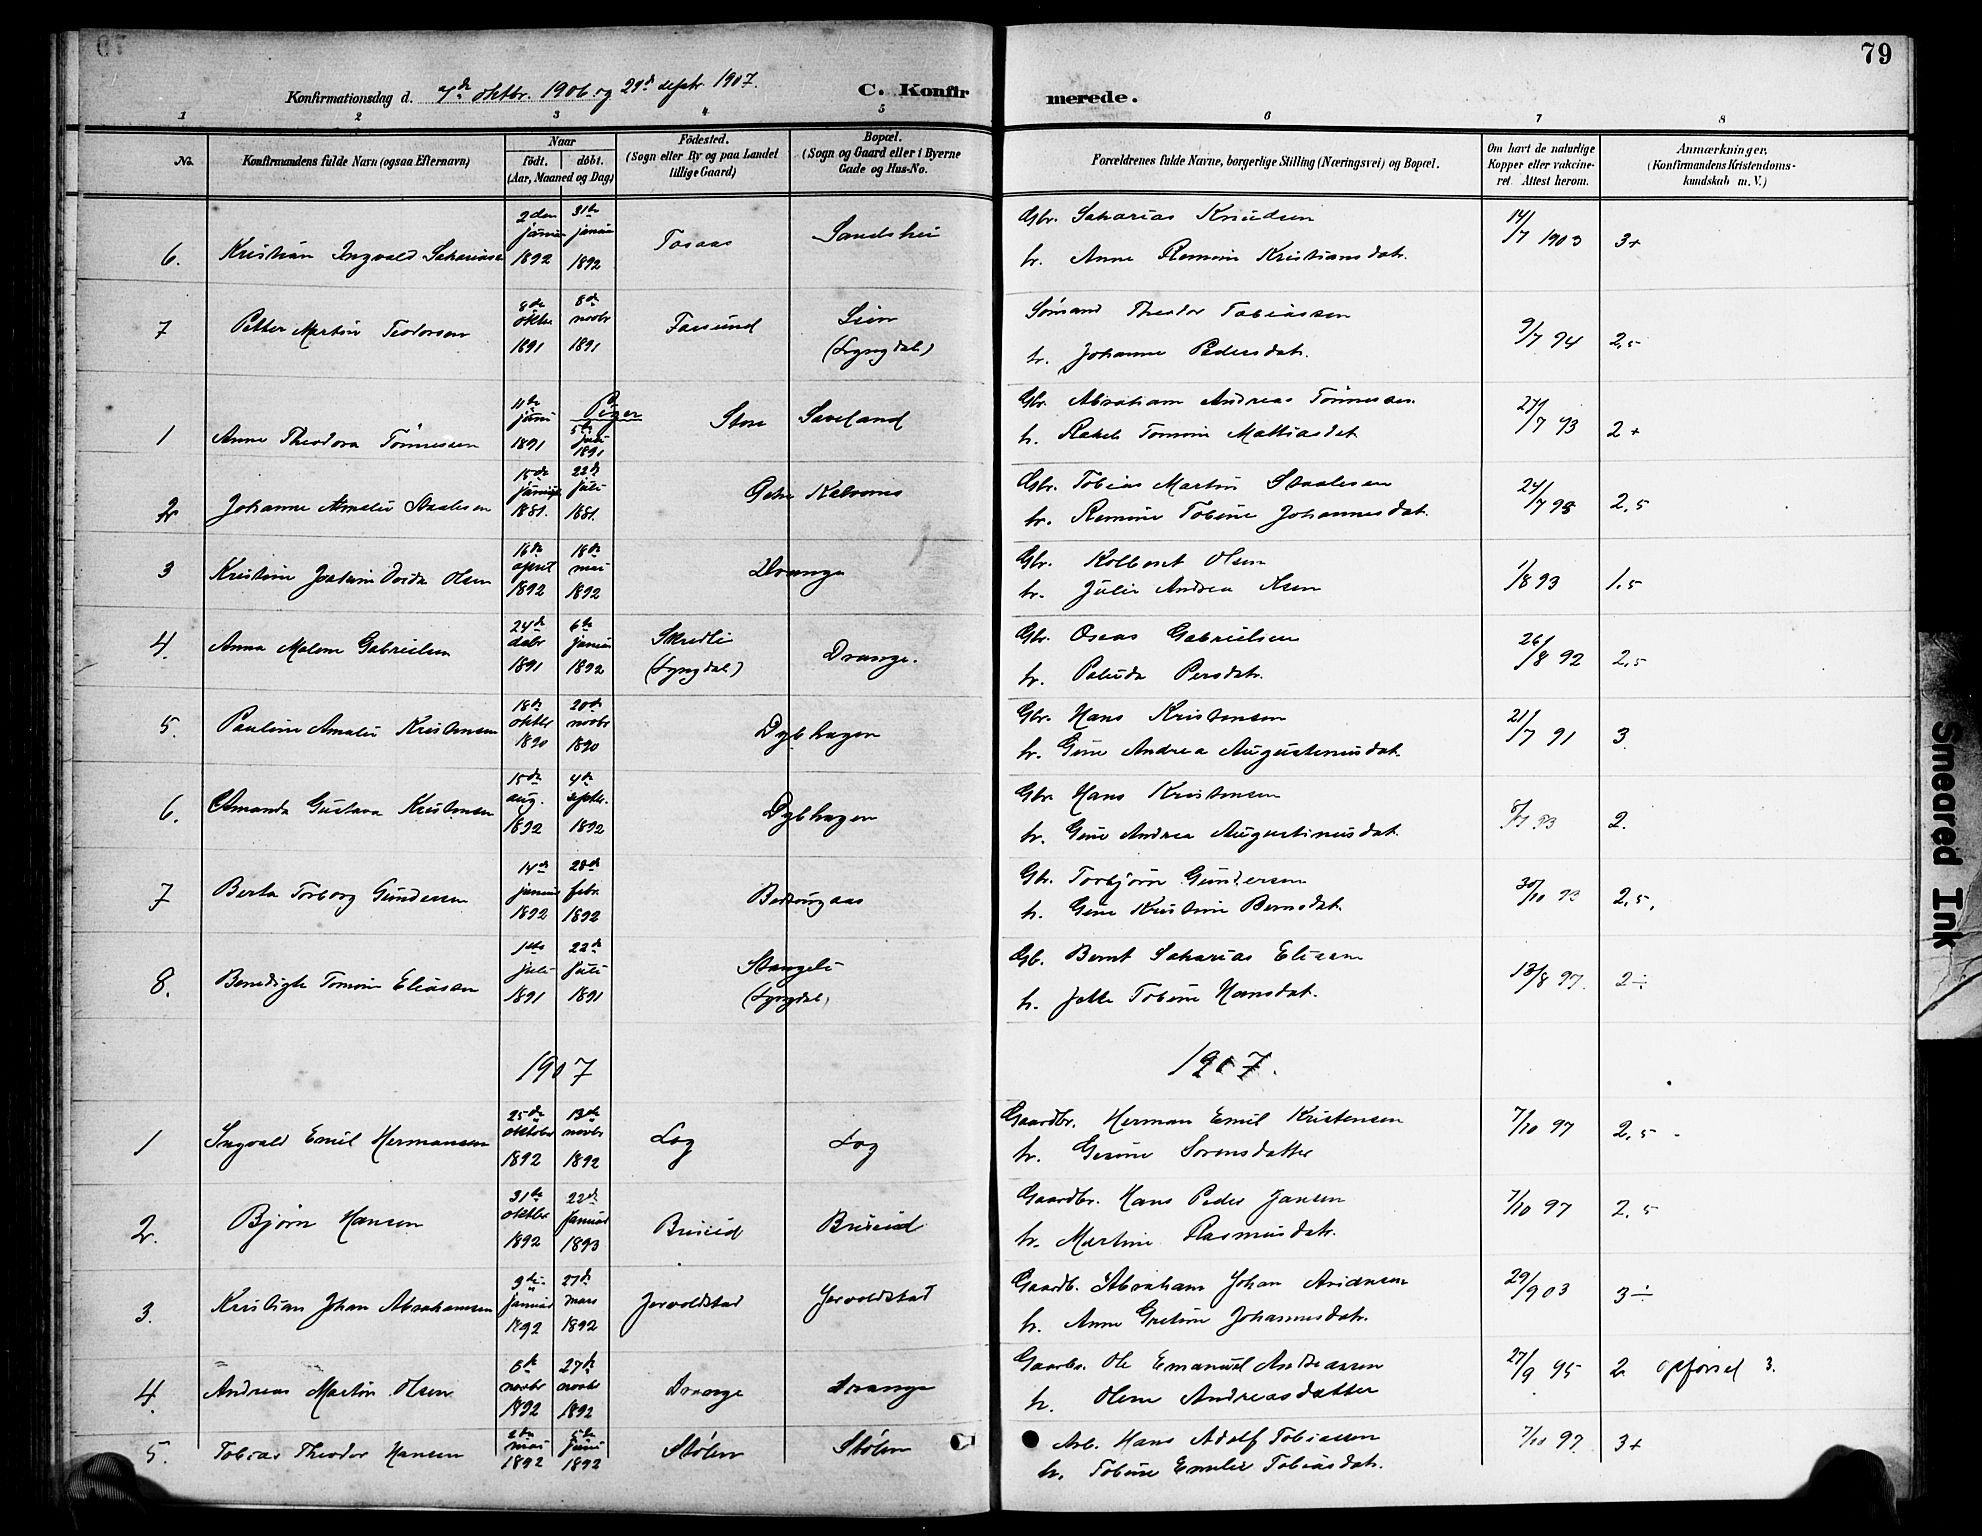 79
Konfirmationsdag d. 7de oktbr. 1906 og 29d septr. 1907.
C. Konfirmerede.
1 2 3 4 5 6 7 8
No.
Konfirmandens fulde Navn (ogsaa Efternavn)
Naar
födt. döbt.
(Aar, Maaned og Dag)
Födested.
(Sogn eller By og paa Landet
tillige Gaard)
Bopæl.
(Sogn og Gaard eller i Byerne
Gade og Hus-No.
Forældrenes fulde Navne, borgerlige Stilling (Næringsvei) og Bopæl.
Om havt de naturlige
Kopper eller vakcine-
ret. Attest herom.
Anmærkninger.
(Konfirmandens Kristendoms-
kundskab m. V.)
6. Kristian Ingvald Sakariasen 2den januar 1892 31te januar 1892 Tosaas Sandshei
Gbr. Sakarias Knudsen 14/7 1903 3+
h. Anne Romine Kristiansdatr.
7 Petter Martin Teodorsen 8de oktbr 1891 8de novbr 1891 Farsund (Lyngdal)
Sømand Theodor Tobiassen 9/7 94 2,5
h. Johanne Pedersdatr.
Piger
1 Anne Theodora Tønnessen 11te juni 1891 5te juli 1891 Store Sæveland
Gbr. Abraham Andreas Tønnessen 27/7 93 2+
h. Rakel Tomine Mattiasdat
2. Johanne Amalie Staalesen 15de 1881. 22de juli 1881.
Gbr. Tobias Martin Staalesen 24/7 95 2,5
h. Romine Tobine Johannesdat.
3 Kristine Joakime Olsen 16de april 1892 18de mai 1892 Drange
Gbr. Kolbent Olsen 1/8 93 1.5
h. Julie Andrea
4. Anna Malene Gabrielsen 24de 1891 6te januar 1892 Skredli (Lyngdal) Drange.
Gbr. Oseas Gabrielsen 26/8 92 2,5
h. Persdatr.
5. Pauline Amalie Kristensen 18de oktbr 1890 20de novbr 1890 Dybhagen
Gbr. Hans Kristensen 21/7 91 3
h. Gine Andrea Augustinusdat.
6. Amanda Gustava Kristensen 15de aug. 1892 4de septbr. 1892 Dybhagen
Gbr. Hans Kristensen 2.
h. Gine Andrea Augustinusdat.
7 Berta Torborg Gundersen 14de januar 1892 28de febr. 1892
Gbr. Torbjørn Gundersen 30/10 93 2,5,
h. Gine Kristine Berntsdat.
8. Benedigte Tomine Eliasen 1ste juli 1891 22de juli 1891 Stangeli (Lyngdal)
Gb. Bernt Sakarias Eliasen 13/8 97. 2÷
h. Jette Tobine Hansdat.
1907 1907.
1 Ingvald Emil Hermansen 25de oktober 1892 13de novbr 1892 Log Log
Gaardbr. Herman Emil Kristensen 7/10 97 2,5
h. Gesine Sorensdatter
2. Bjørn Hansen 31te oktbr 1892 22de Januar 1893 Briseid Briseid
Gaardbr. Hans Peder Jansen 7/10 97 2,5
h. Martine Rasmusdatr.
3. Kristian Johan Abrahamsen 9de Januar 1892 27de mars 1892 Jervoldstad Jervoldstad
Gaardb. Abraham Johan 29/9 03 3÷
h. Anne Gretine Johannesdatr.
4. Andreas Martin Olsen 6te novbr 1892 27de novbr 1892 Drange Drange
Gaardbr. Ole Emanuel Andreassen 27/9 95 2 opførsel 3.
h. Olene Andreasdatter
5. Tobias Theodor Hansen 2den mai 1892 5te juni 1892 Stølen Stølen
Arb. Hans Adolf Tobiassen 7/10 97 3+
h. Tobine Emilie Tobiasdatr.
Smeared Ink